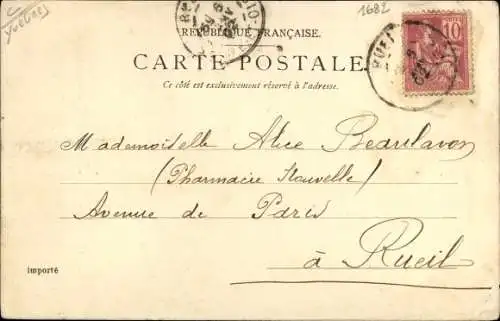 Yvelines
1682
RÉPUBLIQUE FRANÇAISE.
10
RUEIL
CARTE POSTALE
Ce côté est exclusivement réservé à l'adresse.
Mademoiselle Alice Beaulavon
(Pharmacie Nouvelle)
Avenue de Paris
à Rueil
importé